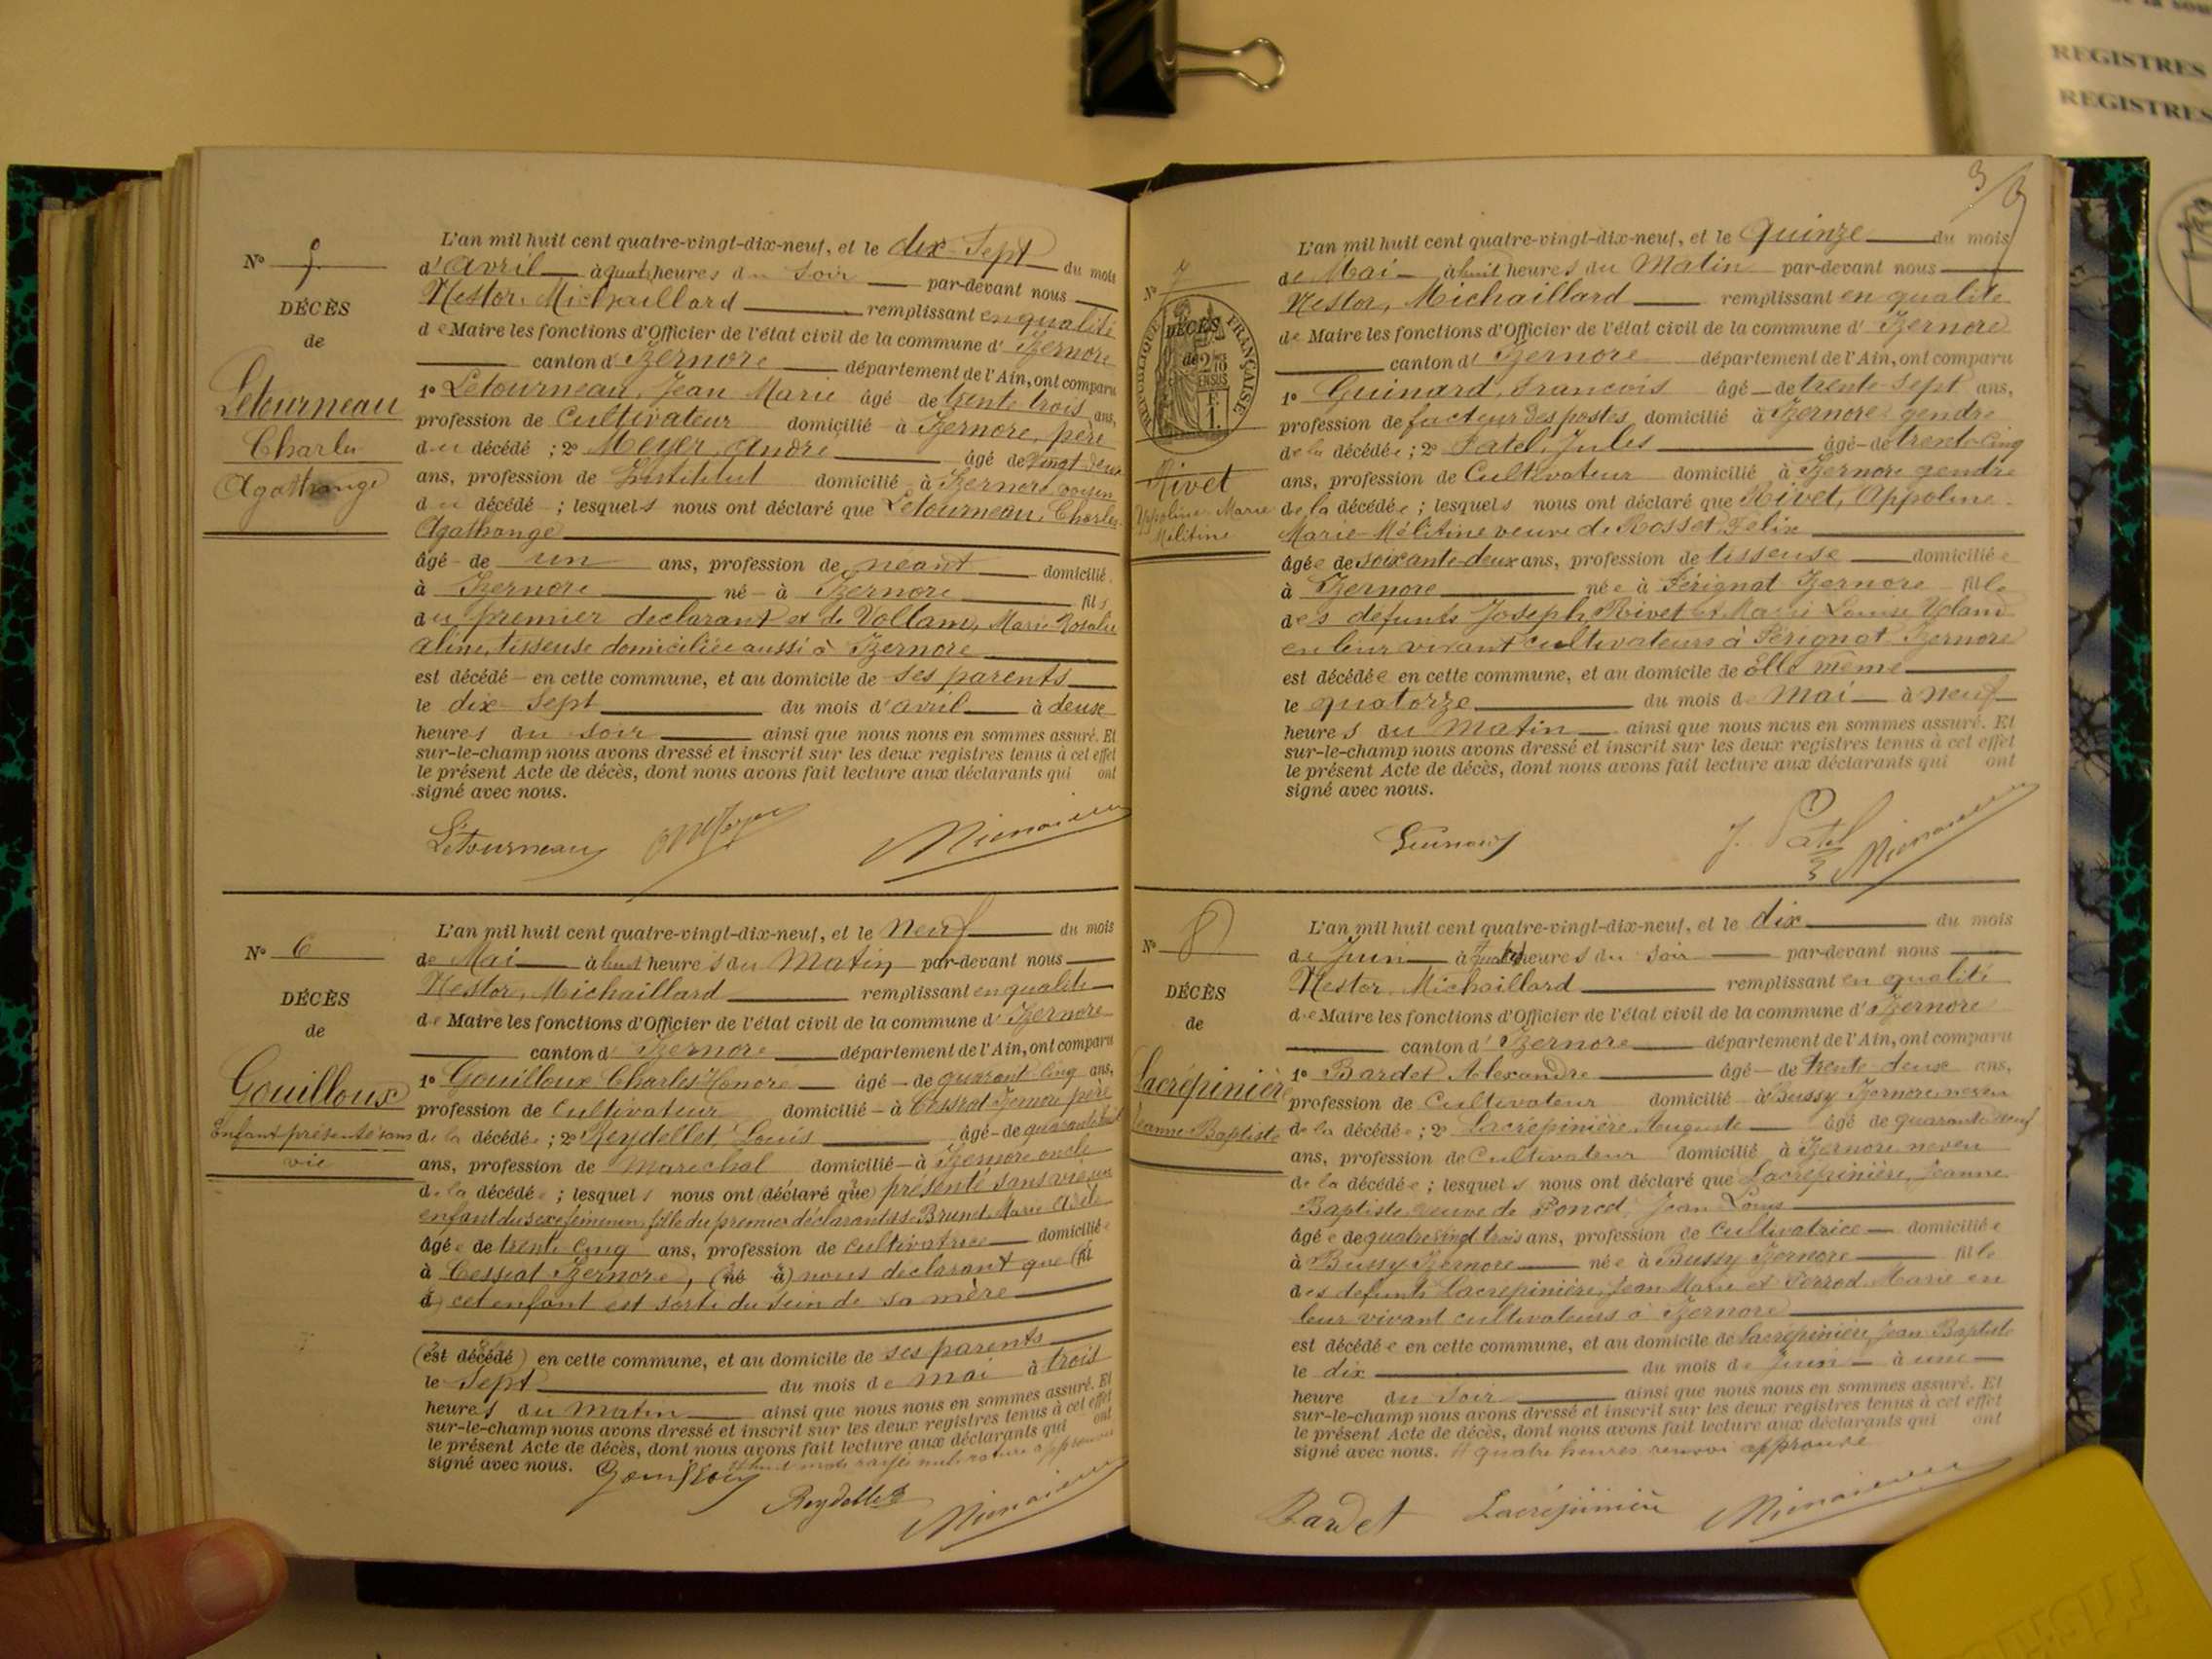 N° 5
DÉCÈS
de
Letourneau
Charles
Agathange
L'an mil huit cent quatre-vingt-dix-neuf, et le dix-sept du mois
d'avril à quatre heures du soir par-devant nous
Nestor, Michaillard remplissant en qualité
de Maire les fonctions d'Officier de l'état civil de la commune d'Izernore
canton d'Izernore département de l'Ain, ont comparu
1° Letourneau, Jean Marie âgé de trente trois ans,
profession de Cultivateur domicilié à Izernore, père
du décédé ; 2° Meyer, André âgé de vingt deux
ans, profession de domicilié à Izernore voisin
du décédé ; lesquels nous ont déclaré que Letourneau, Charles
Agathange
âgé de un ans, profession de néant domicilié
à Izernore né à Izernore fils
du premier déclarant et de Vollam, Marie Rosalie
Aline, tisseuse domiciliée aussi à Izernore
est décédé en cette commune, et au domicile de ses parents
le dix sept du mois d'avril à deux
heures du soir ainsi que nous nous en sommes assuré. Et
sur-le-champ nous avons dressé et inscrit sur les deux registres tenus à cet effet
le présent Acte de décès, dont nous avons fait lecture aux déclarants qui ont
signé avec nous.
Letourneau Meyer
N° 6
DÉCÈS
de
Gouilloux
Enfant présenté sans
vie
L'an mil huit cent quatre-vingt-dix-neuf, et le neuf du mois
de Mai à huit heures du Matin par-devant nous
Nestor, Michaillard remplissant en qualité
de Maire les fonctions d'Officier de l'état civil de la commune d'Izernore
canton d'Izernore département de l'Ain, ont comparu
1° Gouilloux Charles Honoré âgé de quarante cinq ans,
profession de Cultivateur domicilié à Cessiat Izernore père
de la décédée ; 2° Reydellet, Louis âgé de quarante huit
ans, profession de Maréchal domicilié à Izernore oncle
de la décédée ; lesquels nous ont (déclaré que) présenté sans vie un
enfant du sexe féminin, fille du premier déclarant et de Brunet, Marie Adèle
âgée de trente cinq ans, profession de cultivatrice domiciliée
à Cessiat Izernore, (né à) nous déclarant que (fil
d) cet enfant est sorti du sein de sa mère
(est décédé) en cette commune, et au domicile de ses parents
le Sept du mois de mai à trois
heures du matin ainsi que nous nous en sommes assuré. Et
sur-le-champ nous avons dressé et inscrit sur les deux registres tenus à cet effet
le présent Acte de décès, dont nous avons fait lecture aux déclarants qui ont
signé avec nous. mots rayés nuls
Gouilloux Reydellet
3
N° 7
RÉPUBLIQUE FRANÇAISE
DÉCÈS
de
Rivet
Appoline Marie
Mélitine
L'an mil huit cent quatre-vingt-dix-neuf, et le quinze du mois
de Mai à huit heures du Matin par-devant nous
Nestor, Michaillard remplissant en qualité
de Maire les fonctions d'Officier de l'état civil de la commune d'Izernore
canton d'Izernore département de l'Ain, ont comparu
1° Guinard, Francois âgé de trente-sept ans,
profession de facteur des postes, domicilié à Izernore gendre
de la décédée ; 2° Patel, Jules âgé de trente-cinq
ans, profession de Cultivateur domicilié à Izernore gendre
de la décédée ; lesquels nous ont déclaré que Rivet, Appoline
Marie-Mélitine veuve de Rosset, Felix
âgée de soixante-deux ans, profession de tisseuse domiciliée
à Izernore née à Pérignat Izernore fille
des défunts Joseph, Rivet et Marie Louise
en leur vivant cultivateurs à Pérignat Izernore
est décédée en cette commune, et au domicile de Elle même
le quatorze du mois de mai à neuf
heures du Matin ainsi que nous nous en sommes assuré. Et
sur-le-champ nous avons dressé et inscrit sur les deux registres tenus à cet effet
le présent Acte de décès, dont nous avons fait lecture aux déclarants qui ont
signé avec nous.
Guinard J. Patel
N° 8
DÉCÈS
de
Lacrépinière
Jeanne-Baptiste
L'an mil huit cent quatre-vingt-dix-neuf, et le dix du mois
de Juin à quatre heures du soir par-devant nous
Nestor Michaillard remplissant en qualité
de Maire les fonctions d'Officier de l'état civil de la commune d'Izernore
canton d'Izernore département de l'Ain, ont comparu
1° Bardet Alexandre âgé de trente deux ans,
profession de Cultivateur domicilié à Bussy Izernore neveu
de la décédée ; 2° Lacrépinière Auguste âgé de quarante neuf
ans, profession de Cultivateur domicilié à Izernore neveu
de la décédée ; lesquels nous ont déclaré que Lacrépinière, Jeanne
Baptiste veuve de Poncet, Jean Louis
âgée de quatre vingt trois ans, profession de Cultivatrice domiciliée
à Bussy Izernore née à Bussy Izernore fille
des défunts Lacrépinière, Jean Marie et Perrod Marie en
leur vivant cultivateurs à Izernore
est décédée en cette commune, et au domicile de Lacrépinière, Jean Baptiste
le dix du mois de Juin à une
heure du Soir ainsi que nous nous en sommes assuré. Et
sur-le-champ nous avons dressé et inscrit sur les deux registres tenus à cet effet
le présent Acte de décès, dont nous avons fait lecture aux déclarants qui ont
signé avec nous. # quatre heures renvoi approuvé
Bardet Lacrépinière
REGISTRES
REGISTRES